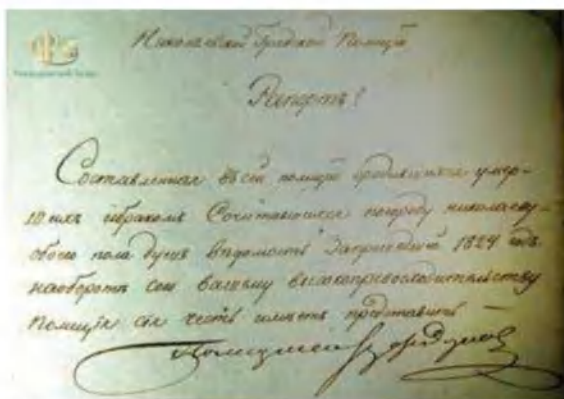 Николаевской Градской Полиции
Рапортъ!
Составленная въ сей полиции о родившихся умер-
шихъ и бракомъ Сочетавшихся по городу николаеву
обоего пола душъ ведомость За 1824 годъ
наоборотъ сего вашему высокопревосходительству
Полиция сия честь имеетъ представить —
Полицмей